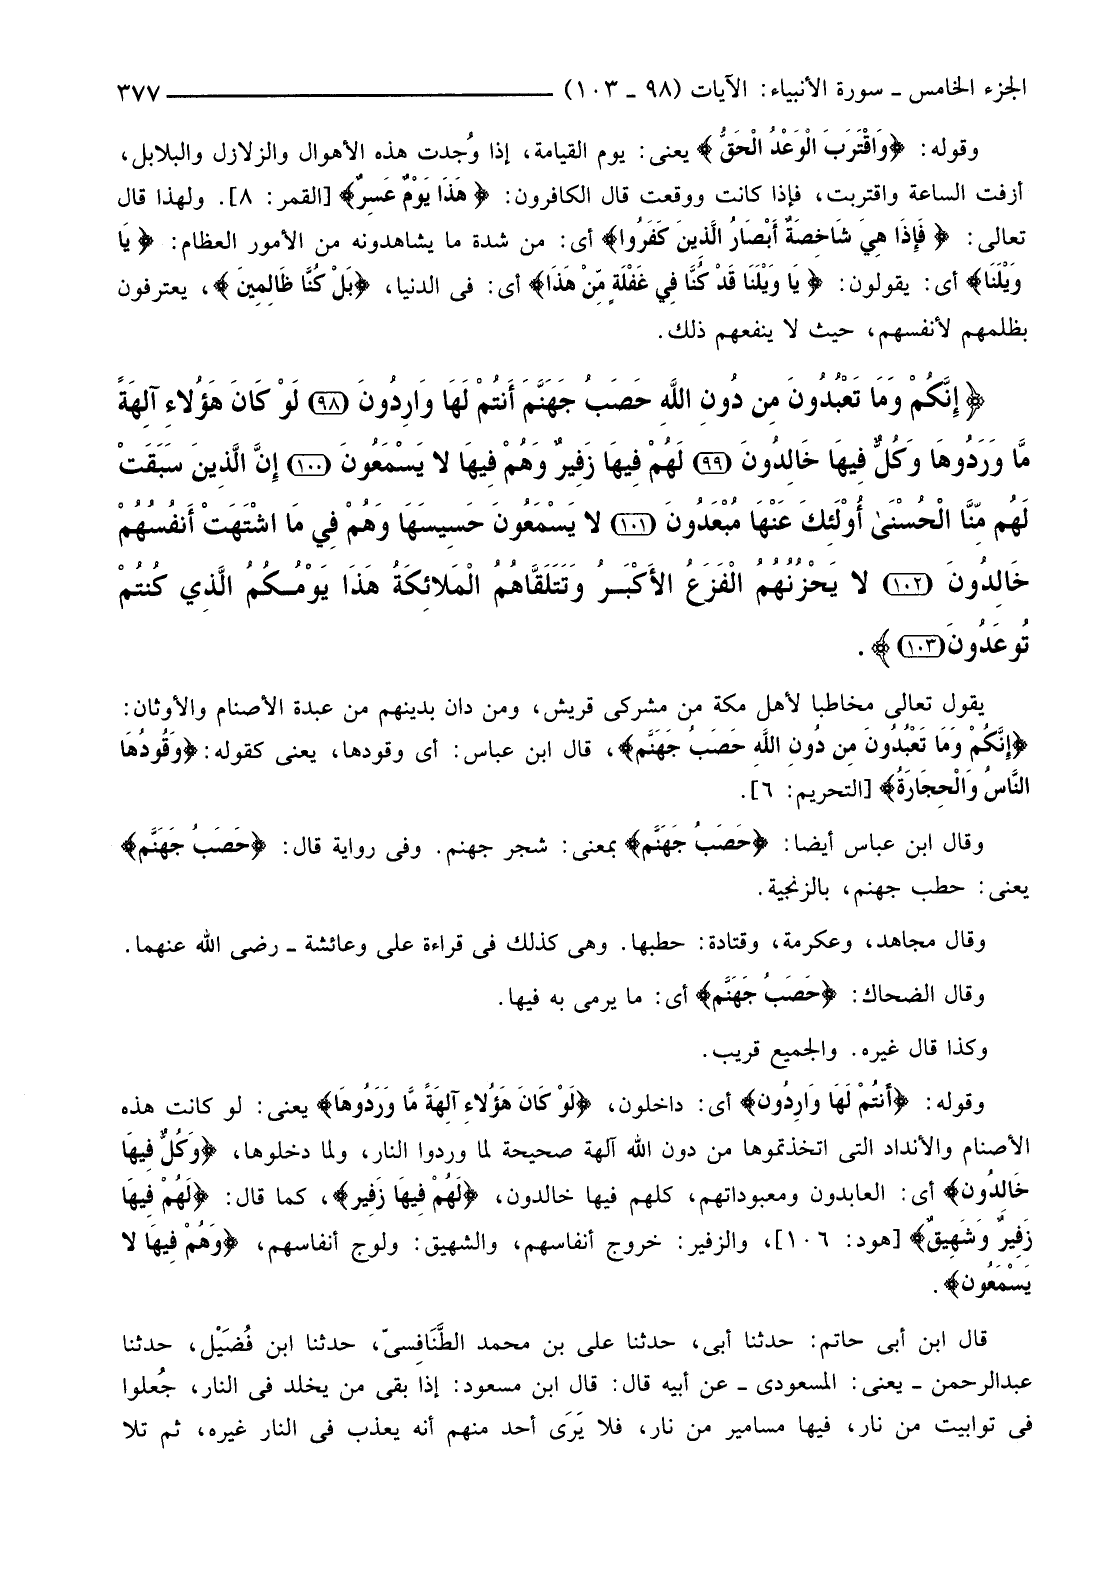 الجزء الخامس ـ سورة الأنبياء: الآيات (٩٨ ـ ١٠٣) ٣٧٧
وقوله: ﴿وَاقْتَرَبَ الْوَعْدُ الْحَقُّ﴾ يعنى: يوم القيامة، إذا وُجدت هذه الأهوال والزلازل والبلابل،
أزفت الساعة واقتربت، فإذا كانت ووقعت قال الكافرون: ﴿هَذَا يَوْمٌ عَسِرٌ﴾ [القمر: ٨]. ولهذا قال
تعالى: ﴿فَإِذَا هِيَ شَاخِصَةٌ أَبْصَارُ الَّذِينَ كَفَرُوا﴾ أى: من شدة ما يشاهدونه من الأمور العظام: ﴿يَا
وَيْلَنَا﴾ أى: يقولون: ﴿يَا وَيْلَنَا قَدْ كُنَّا فِي غَفْلَةٍ مِّنْ هَذَا﴾ أى: فى الدنيا، ﴿بَلْ كُنَّا ظَالِمِينَ﴾، يعترفون
بظلمهم لأنفسهم، حيث لا ينفعهم ذلك.
﴿إِنَّكُمْ وَمَا تَعْبُدُونَ مِن دُونِ اللَّهِ حَصَبُ جَهَنَّمَ أَنتُمْ لَهَا وَارِدُونَ (٩٨) لَوْ كَانَ هَؤُلاءِ آلِهَةً
مَّا وَرَدُوهَا وَكُلٌّ فِيهَا خَالِدُونَ (٩٩) لَهُمْ فِيهَا زَفِيرٌ وَهُمْ فِيهَا لا يَسْمَعُونَ (١٠٠) إِنَّ الَّذِينَ سَبَقَتْ
لَهُم مِّنَّا الْحُسْنَىٰ أُوْلَئِكَ عَنْهَا مُبْعَدُونَ (١٠١) لا يَسْمَعُونَ حَسِيسَهَا وَهُمْ فِي مَا اشْتَهَتْ أَنفُسُهُمْ
خَالِدُونَ (١٠٢) لا يَحْزُنُهُمُ الْفَزَعُ الأَكْبَرُ وَتَتَلَقَّاهُمُ الْمَلائِكَةُ هَذَا يَوْمُكُمُ الَّذِي كُنتُمْ
تُوعَدُونَ (١٠٣)﴾.
يقول تعالى مخاطبا لأهل مكة من مشركى قريش، ومن دان بدينهم من عبدة الأصنام والأوثان:
﴿إِنَّكُمْ وَمَا تَعْبُدُونَ مِن دُونِ اللَّهِ حَصَبُ جَهَنَّم﴾، قال ابن عباس: أى وقودها، يعنى كقوله: ﴿وَقُودُهَا
النَّاسُ وَالْحِجَارَةُ﴾ [التحريم: ٦].
وقال ابن عباس أيضا: ﴿حَصَبُ جَهَنَّم﴾ بمعنى: شجر جهنم. وفى رواية قال: ﴿حَصَبُ جَهَنَّم﴾
يعنى: حطب جهنم، بالزنجية.
وقال مجاهد، وعكرمة، وقتادة: حطبها. وهى كذلك فى قراءة على وعائشة ـ رضى الله عنهما.
وقال الضحاك: ﴿حَصَبُ جَهَنَّم﴾ أى: ما يرمى به فيها.
وكذا قال غيره. والجميع قريب.
وقوله: ﴿أَنتُمْ لَهَا وَارِدُون﴾ أى: داخلون، ﴿لَوْ كَانَ هَؤُلاءِ آلِهَةً مَّا وَرَدُوهَا﴾ يعنى: لو كانت هذه
الأصنام والأنداد التى اتخذتموها من دون الله آلهة صحيحة لما وردوا النار، ولما دخلوها، ﴿وَكُلٌّ فِيهَا
خَالِدُون﴾ أى: العابدون ومعبوداتهم، كلهم فيها خالدون، ﴿لَهُمْ فِيهَا زَفِير﴾، كما قال: ﴿لَهُمْ فِيهَا
زَفِيرٌ وَشَهِيقٌ﴾ [هود: ١٠٦]، والزفير: خروج أنفاسهم، والشهيق: ولوج أنفاسهم، ﴿وَهُمْ فِيهَا لا
يَسْمَعُون﴾.
قال ابن أبى حاتم: حدثنا أبى، حدثنا على بن محمد الطَّنَافِسىّ، حدثنا ابن فُضَيْل، حدثنا
عبدالرحمن ـ يعنى: المسعودى ـ عن أبيه قال: قال ابن مسعود: إذا بقى من يخلد فى النار، جُعلوا
فى توابيت من نار، فيها مسامير من نار، فلا يَرَى أحد منهم أنه يعذب فى النار غيره، ثم تلا